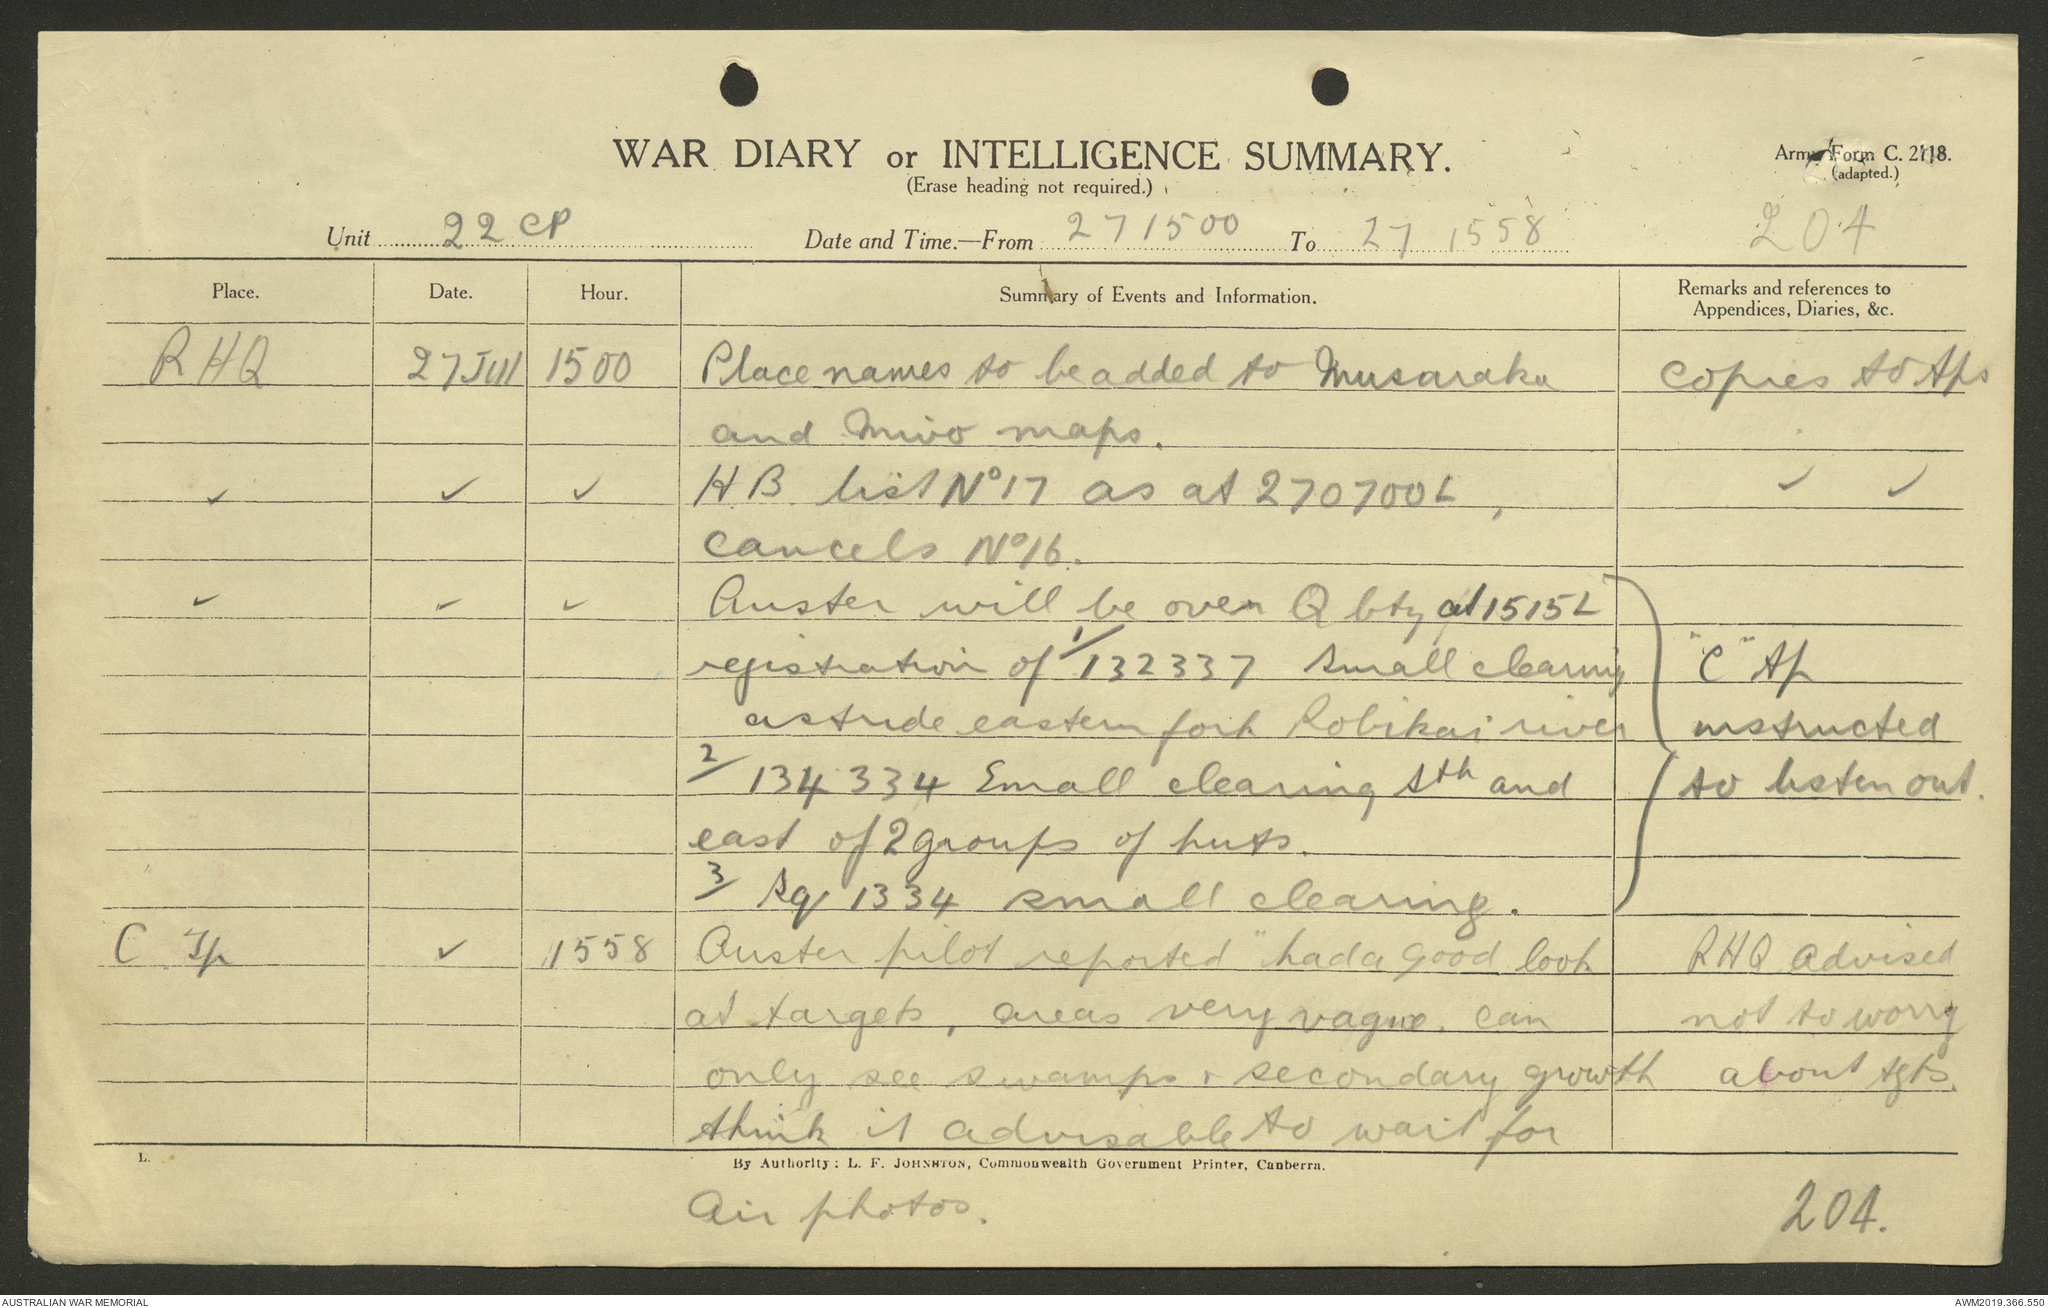 WAR DIARY or INTELLIGENCE SUMMARY.
(Erase heading not required.)
Army Form C. 2118.
(adapted.)
Unit 22 CP Date and Time.—From 27 1500 To 27 1558 204
Place. Date. Hour. Summary of Events and Information. Remarks and references to Appendices, Diaries, &c.
RHQ 27 Jul 1500 Place names to be added to Musaraka copies to tps
and Mivo maps.
✓ ✓ ✓ HB list No 17 as at 270700L, ✓ ✓
cancels No 16.
✓ ✓ ✓ Auster will be over Q bty at 1515L
registration of 1/ 132337 small clearing "C" tp
astride eastern fork Kobikai river instructed
2/ 134334 Small clearing sth and to listen out.
east of 2 groups of huts.
3/ Sq 1334 small clearing.
C Tp ✓ 1558 Auster pilot reported "had a good look RHQ advised
at targets, areas very vague. can not to worry
only see swamps + secondary growth about tgts.
think it advisable to wait for
L. By Authority: L. F. JOHNSTON, Commonwealth Government Printer, Canberra.
Air photos. 204.
AUSTRALIAN WAR MEMORIAL AWM2019.366.550